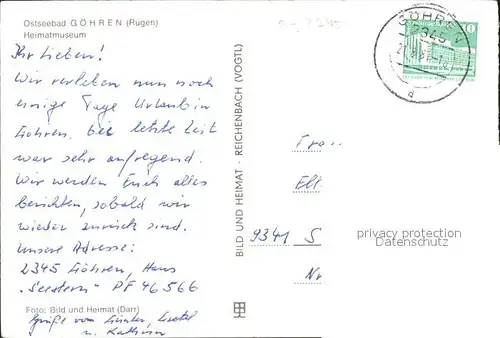 Ostseebad GÖHREN (Rügen)
Heimatmuseum
Ihr Lieben!
Wir verleben nun noch
einige Tage Urlaub in
Göhren. Die letzte Zeit
war sehr aufregend.
Wir werden Euch alles
berichten, sobald wir
wieder zurück sind.
Unsere Adresse:
2345 Göhren, Haus
"Seestern" PF 46 566
Foto: Bild und Heimat (Darr)
Grüße von Günter,
u. Kathrin
BILD UND HEIMAT · REICHENBACH (VOGTL)
GÖHREN
2345
d
10
9341 S
privacy protection
Datenschutz